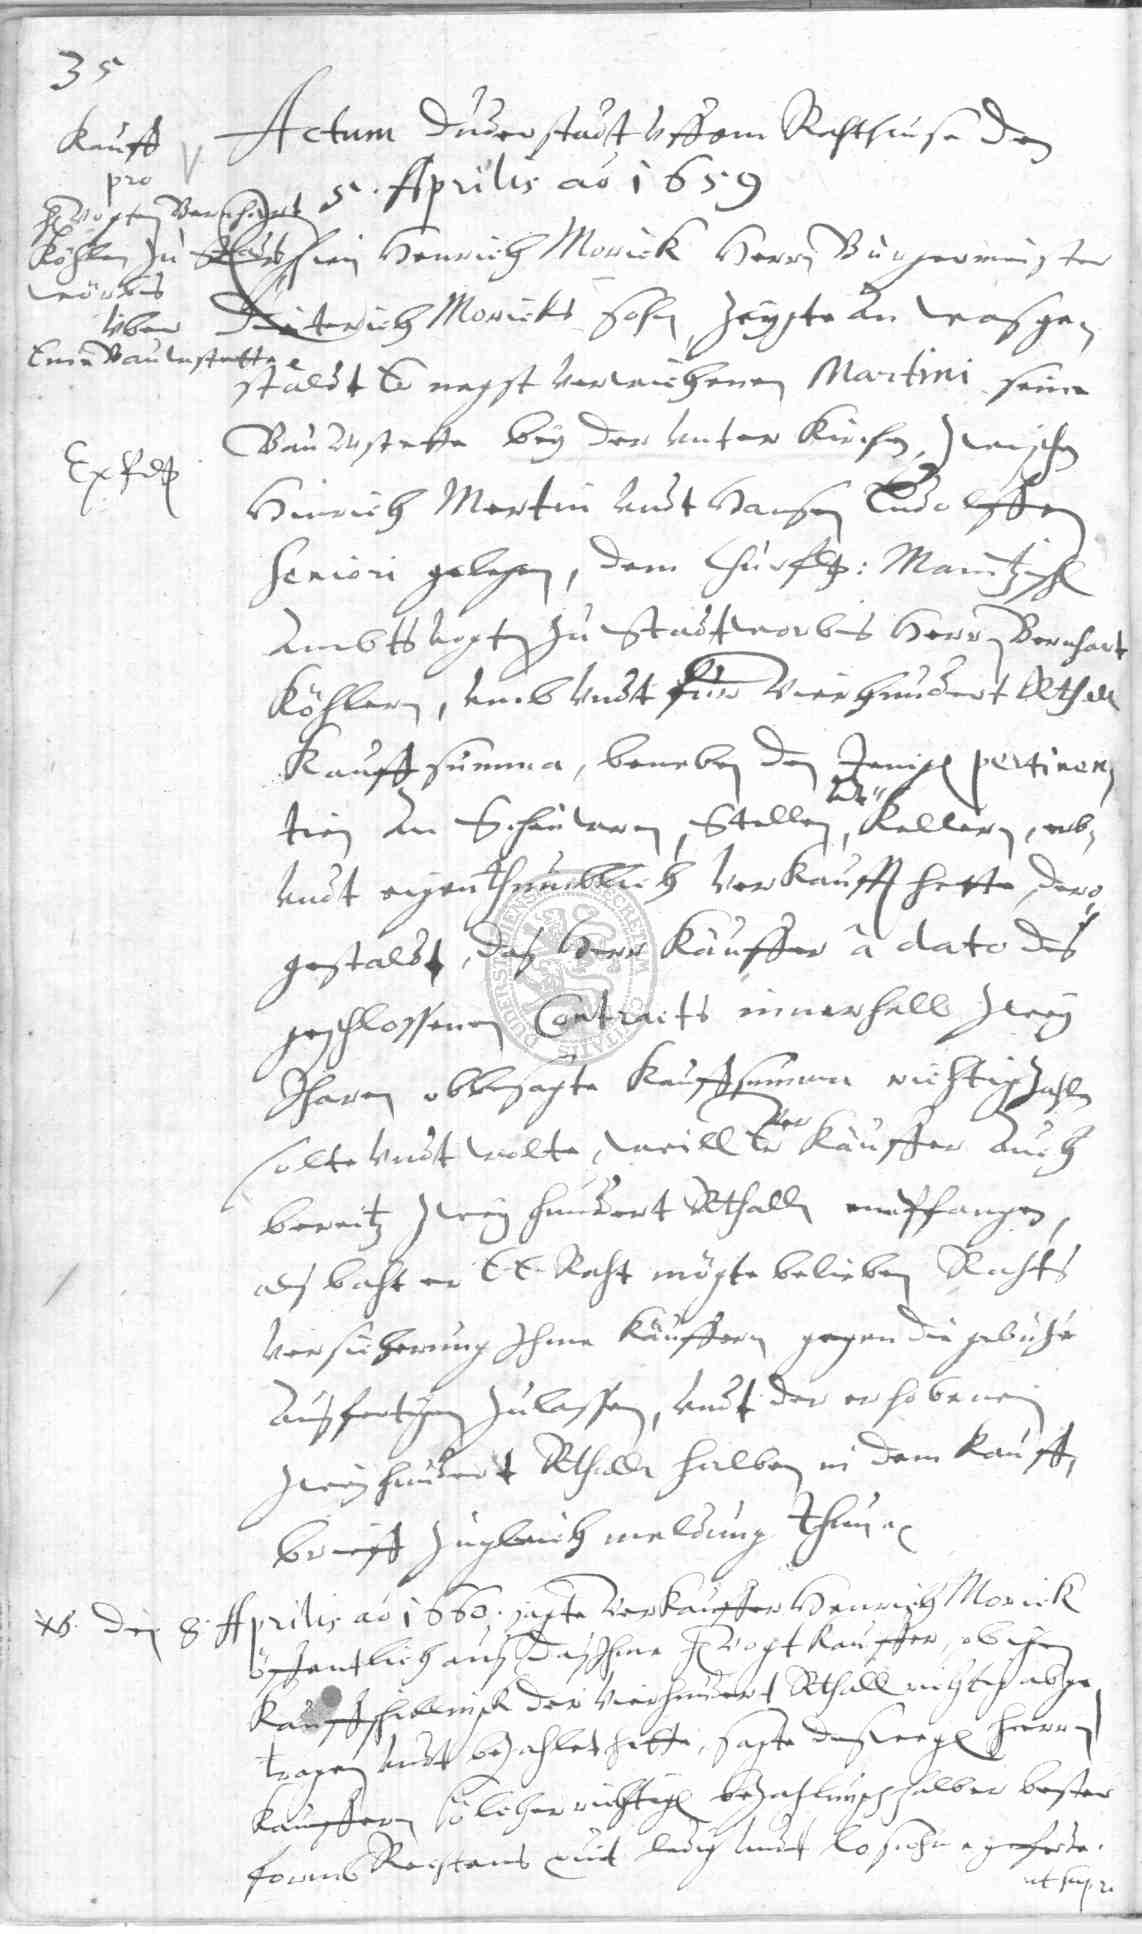 35
Kauff
pro
H Vogten Bernhart
Köhlen zu Stadt
worbis
über
Eine Bauwstette
Expdt
Actum Duderstadt uffem Rahthuse den
5. Aprilis ao 1659
Henrich Morick Herrn Burgermeister
Dieterich Moricks Sohn, zeigte an wasge
staldt Er negst verwichenen Martini seine
Bauwstette bey der unter Kirchen, zwischen
Hinrich Mertin undt Hansen Ludolffen
seniori gelegen, dem Churfl: Maintzischen
Ambts Vogten zu Stadtworbis Herrn Bernhart
Köhlern, umb undt für Vierhundert Rthlr
Kauff summa, beneben den pertinen
tien an Scheuren, Stellen, Kellern, erb
undt eigenthumblich verkaufft hette, dero
gestaldt, das Herr Käuffer â dato des
geschlossenen Contracts innerhalb zwey
Jharen obbesagte Kauffsumma richtig zahlen
solte undt wolte, weill Er Verkäuffer auch
bereitz zwey hundert Rthaller entpfangen,
als baht er E.E. Raht mögte belieben Rahts
versicherung Ihme Käuffern gegen die gebühr
außfertigen zulassen, undt der erhobenen
zwey hundert Rthaler halben in dem Kauff
brieff zugleich meldung thun
NB. Den 8. Aprilis ao 1660. sagte Verkäuffer Henrich Morick
öffentlich auß das Ihme H Vogt Käuffer, obigen
Kauffschillingk der Vierhundert Rthall richtig abge
tragen undt bezahlet hette, sagte Herrn
Käuffern solcher richtigen bezahlung halber bester
forms Rechtens quit ledig undt loß
ut supr.
SECRETUM CIVITATIS